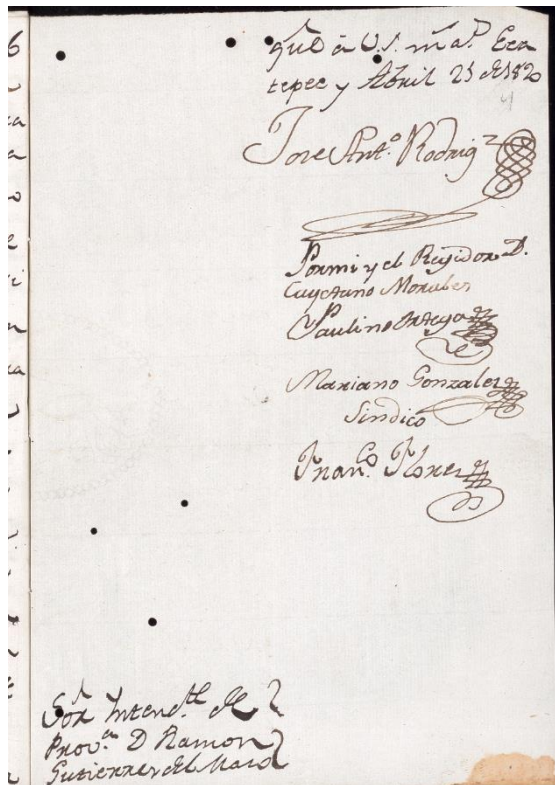 gūe à V.S. m.s a.s Eca
tepec y Abril 25 de 1820
Jose Ant.o Rodrig.z
Por mi y el Regidor D.
Cayetano Morales
Paulino Ortega
Mariano Gonzales
Sindico
Fran.co Flores
Sor Intend.te de
Prov.a D Ramon
Gutierrez del Mazo